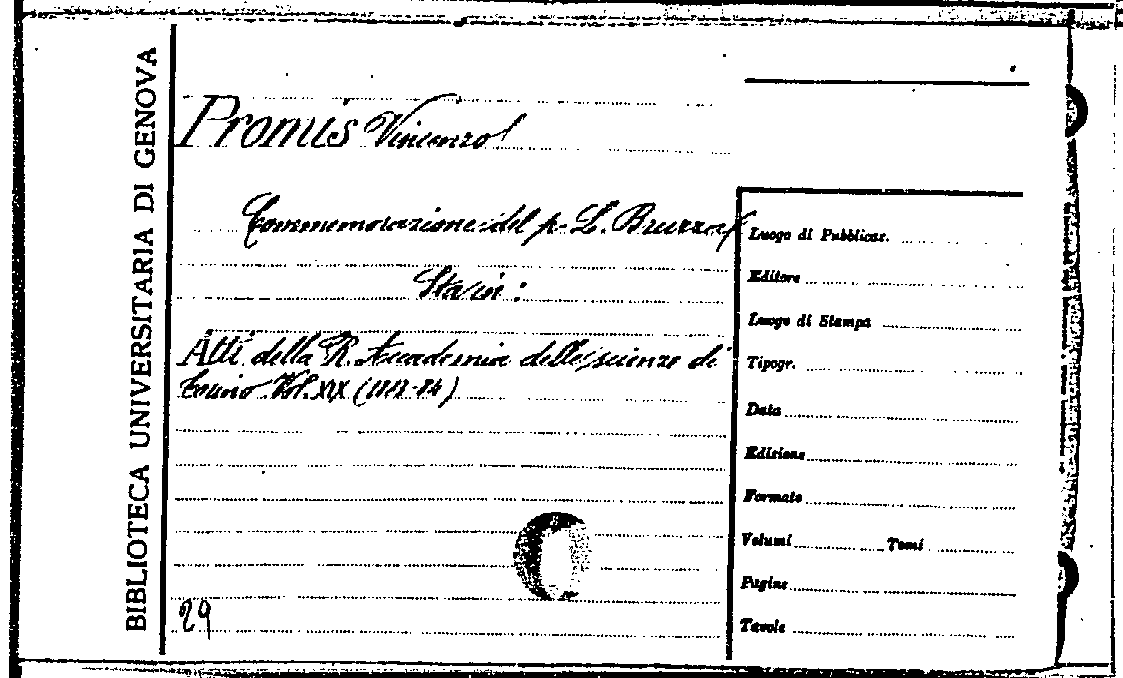 BIBLIOTECA UNIVERSITARIA DI GENOVA
Promis Vincenzo
Commemorazione del p. L. Bruzza
Sta in:
Atti della R. Accademia delle scienze di
Torino Vol. XIX (1883-84)
29
Luogo di Pubblicaz.
Editore
Luogo di Stampa
Tipogr.
Data
Edizione
Formato
Volumi Tomi
Pagine
Tavole